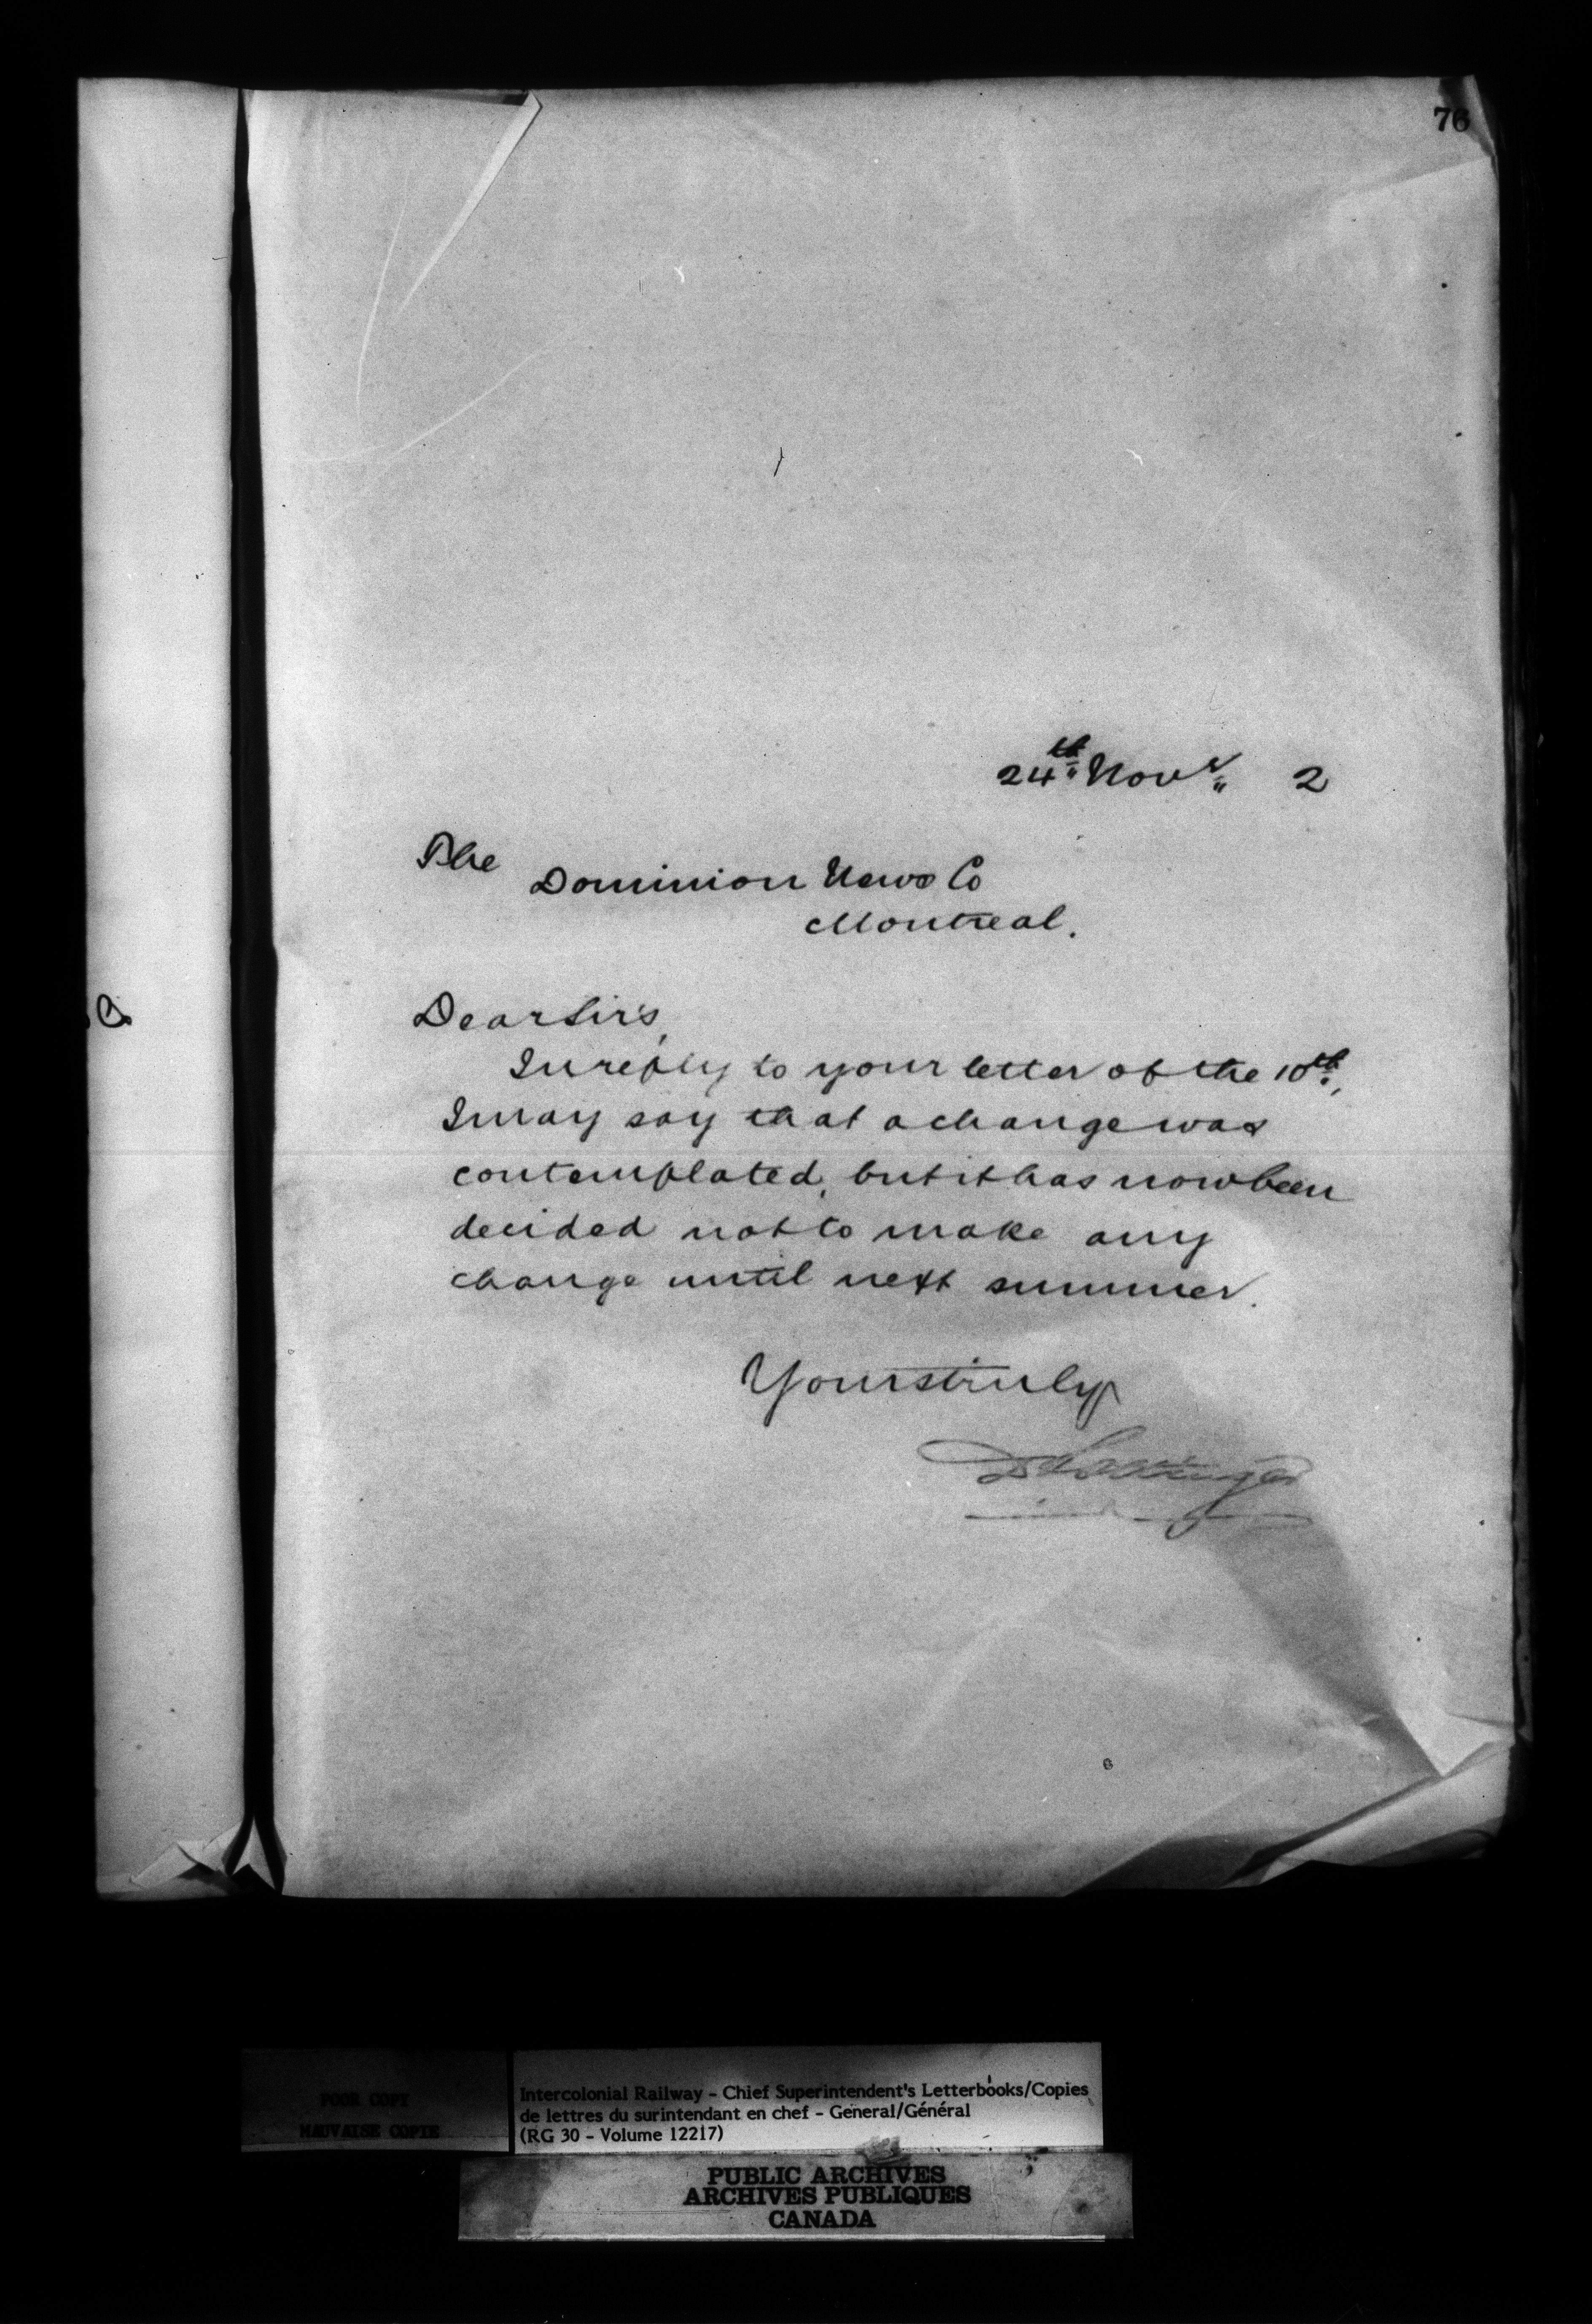 76
24th Novr 2
The
Dominion News Co
Montreal.
Dear Sirs,
In reply to your letter of the 10th,
I may say that a change was
contemplated, but it has now been
decided not to make any
change until next summer.
Yours truly
D Pottinger
POOR COPY
MAUVAISE COPIE
Intercolonial Railway - Chief Superintendent's Letterbooks/Copies
de lettres du surintendant en chef - General/Général
(RG 30 - Volume 12217)
PUBLIC ARCHIVES
ARCHIVES PUBLIQUES
CANADA